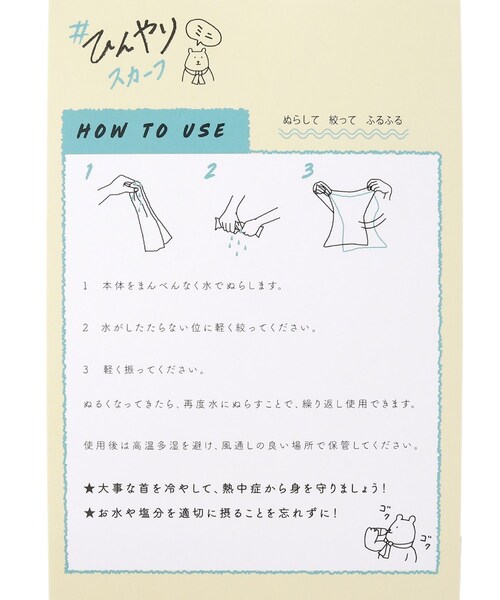 #ひんやり
ミニ
スカーフ
HOW TO USE
ぬらして 絞って ふるふる
1 2 3
1 本体をまんべんなく水でぬらします。
2 水がしたたらない位に軽く絞ってください。
3 軽く振ってください。
ぬるくなってきたら、再度水にぬらすことで、繰り返し使用できます。
使用後は高温多湿を避け、風通しの良い場所で保管してください。
★大事な首を冷やして、熱中症から身を守りましょう!
★お水や塩分を適切に摂ることを忘れずに!
ゴク
ゴク